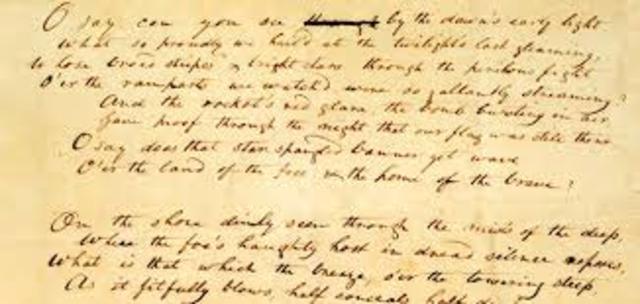 O say can you see through by the dawn's early light
What so proudly we hail'd at the twilight's last gleaming,
Whose broad stripes & bright stars through the perilous fight
O'er the ramparts we watch'd, were so gallantly streaming?
And the rocket's red glare, the bomb bursting in air,
Gave proof through the night that our flag was still there
O say does that star spangled banner yet wave
O'er the land of the free & the home of the brave?
On the shore dimly seen through the mists of the deep,
Where the foe's haughty host in dread silence reposes,
What is that which the breeze, o'er the towering steep,
As it fitfully blows, half conceals, half